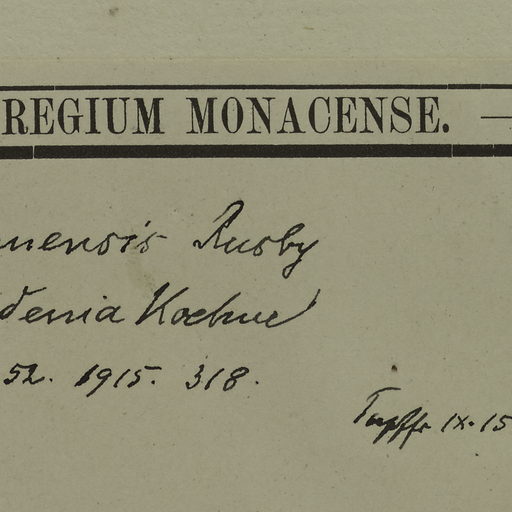 REGIUM MONACENSE.
nensis Rusby
denia Koehne
52. 1915. 318.
IX. 15